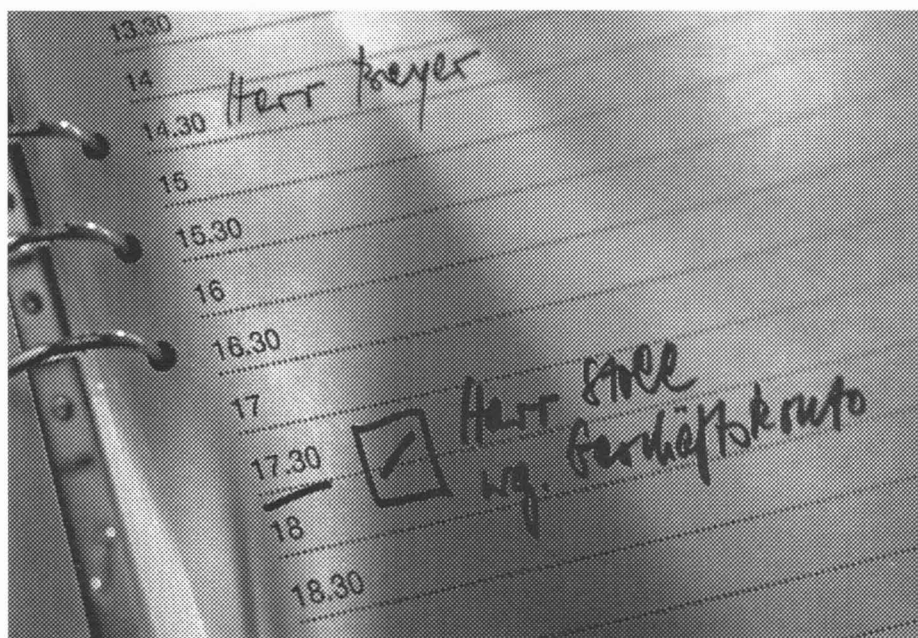 13.30
14
14.30 Herr Breyer
15
15.30
16
16.30
17
Herr Stoll
17.30 wg. Geschäftskonto
18
18.30